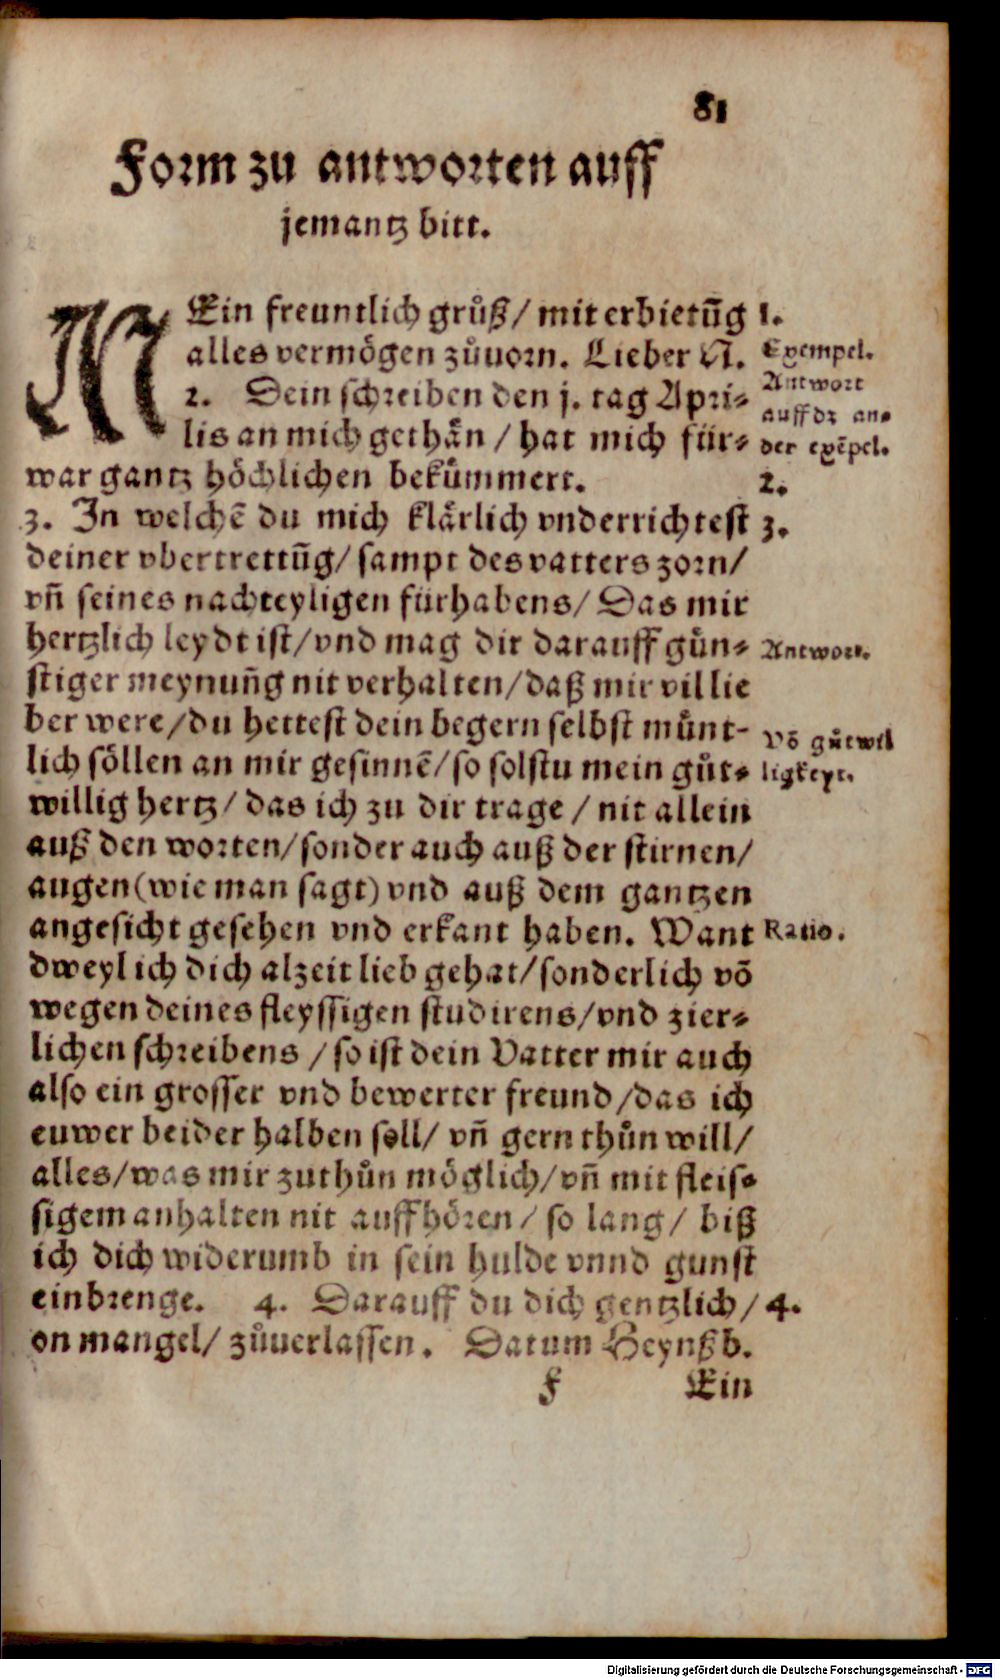 81
Form zu antworten auff
jemantz bitt.
MEin freuntlich gruͦß/ mit erbietūg
alles vermoͤgen zuͦuorn. Lieber N.
2. Dein schreiben den j. tag Apri⸗
lis an mich gethaͤn / hat mich fuͤr⸗
war gantz hoͤchlichen bekuͤmmert.
3. In welchē du mich klaͤrlich vnderrichtest
deiner vbertrettūg/ sampt des vatters zorn/
vñ seines nachteyligen fuͤrhabens/ Das mir
hertzlich leydt ist/ vnd mag dir darauff guͤn⸗
stiger meynun̄g nit verhalten/ daß mir vil lie
ber were/ du hettest dein begern selbst muͤnt-
lich soͤllen an mir gesinnē/ so solstu mein guͦt⸗
willig hertz/ das ich zu dir trage / nit allein
auß den worten/ sonder auch auß der stirnen/
augen (wie man sagt) vnd auß dem gantzen
angesicht gesehen vnd erkant haben. Want
dweyl ich dich alzeit lieb gehat/ sonderlich vō
wegen deines fleyssigen studirens/ vnd zier⸗
lichen schreibens / so ist dein Vatter mir auch
also ein grosser vnd bewerter freund/ das ich
euwer beider halben soll/ vñ gern thuͦn will/
alles/ was mir zuthuͦn moͤglich/ vñ mit fleis⸗
sigem anhalten nit auffhoͤren/ so lang/ biß
ich dich widerumb in sein hulde vnnd gunst
einbrenge. 4. Darauff du dich gentzlich/
on mangel/ zuͦuerlassen. Datum Heynßb.
F Ein
1.
Exempel.
Antwort
auff dz an⸗
der exēpel.
2.
3.
Antwort.
Vō guͦtwil
ligkeyt.
Ratio.
4.
Digitalisierung gefördert durch die Deutsche Forschungsgemeinschaft - DFG